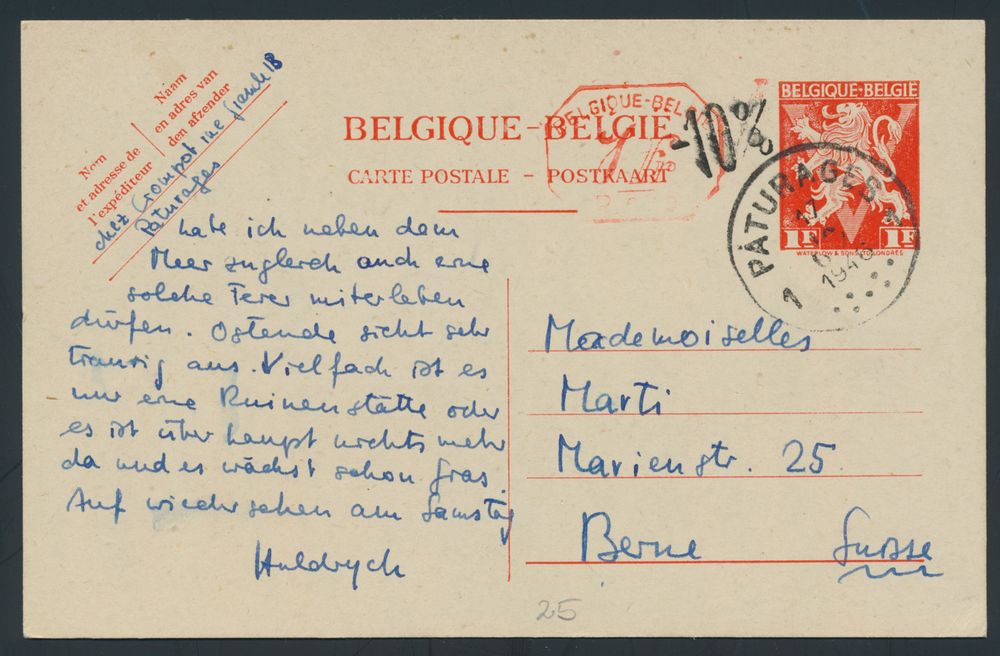 Naam
en adres van
den afzender
Nom
et adresse de
l'expéditeur
chez Crompot rue grande 18
Pâturages
BELGIQUE - BELGIË
CARTE POSTALE - POSTKAART
BELGIQUE-BELGIË
-10%
BELGIQUE-BELGIË
1F 1F
WATERLOW & SONS LTD LONDRES
PÂTURAGES
1946
1
habe ich neben dem
Meer zugleich auch eine
solche Feier miterleben
dürfen. Ostende sieht sehr
traurig aus. Vielfach ist es
nur eine Ruinenstätte oder
es ist überhaupt nichts mehr
da und es wächst schon Gras.
Auf wiedersehen am Samstag
Huldrych
Mademoiselles
Marti
Marienstr. 25
Berne Suisse
25